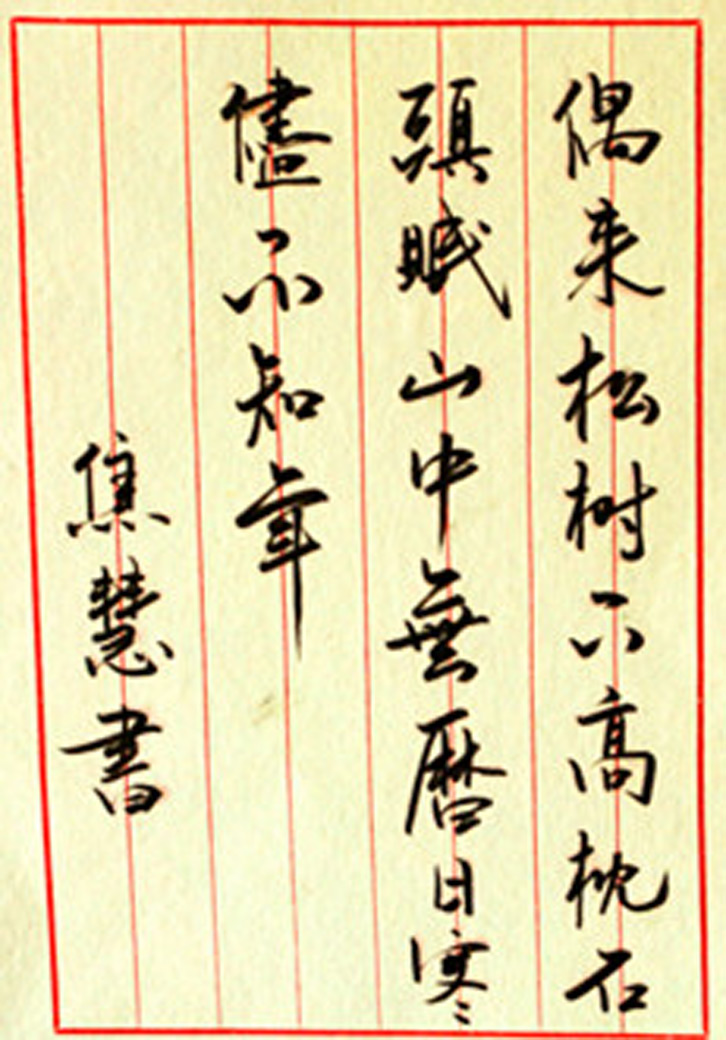 偶来松树下高枕石
頭眠山中無曆日寒
儘不知年
焦慧書